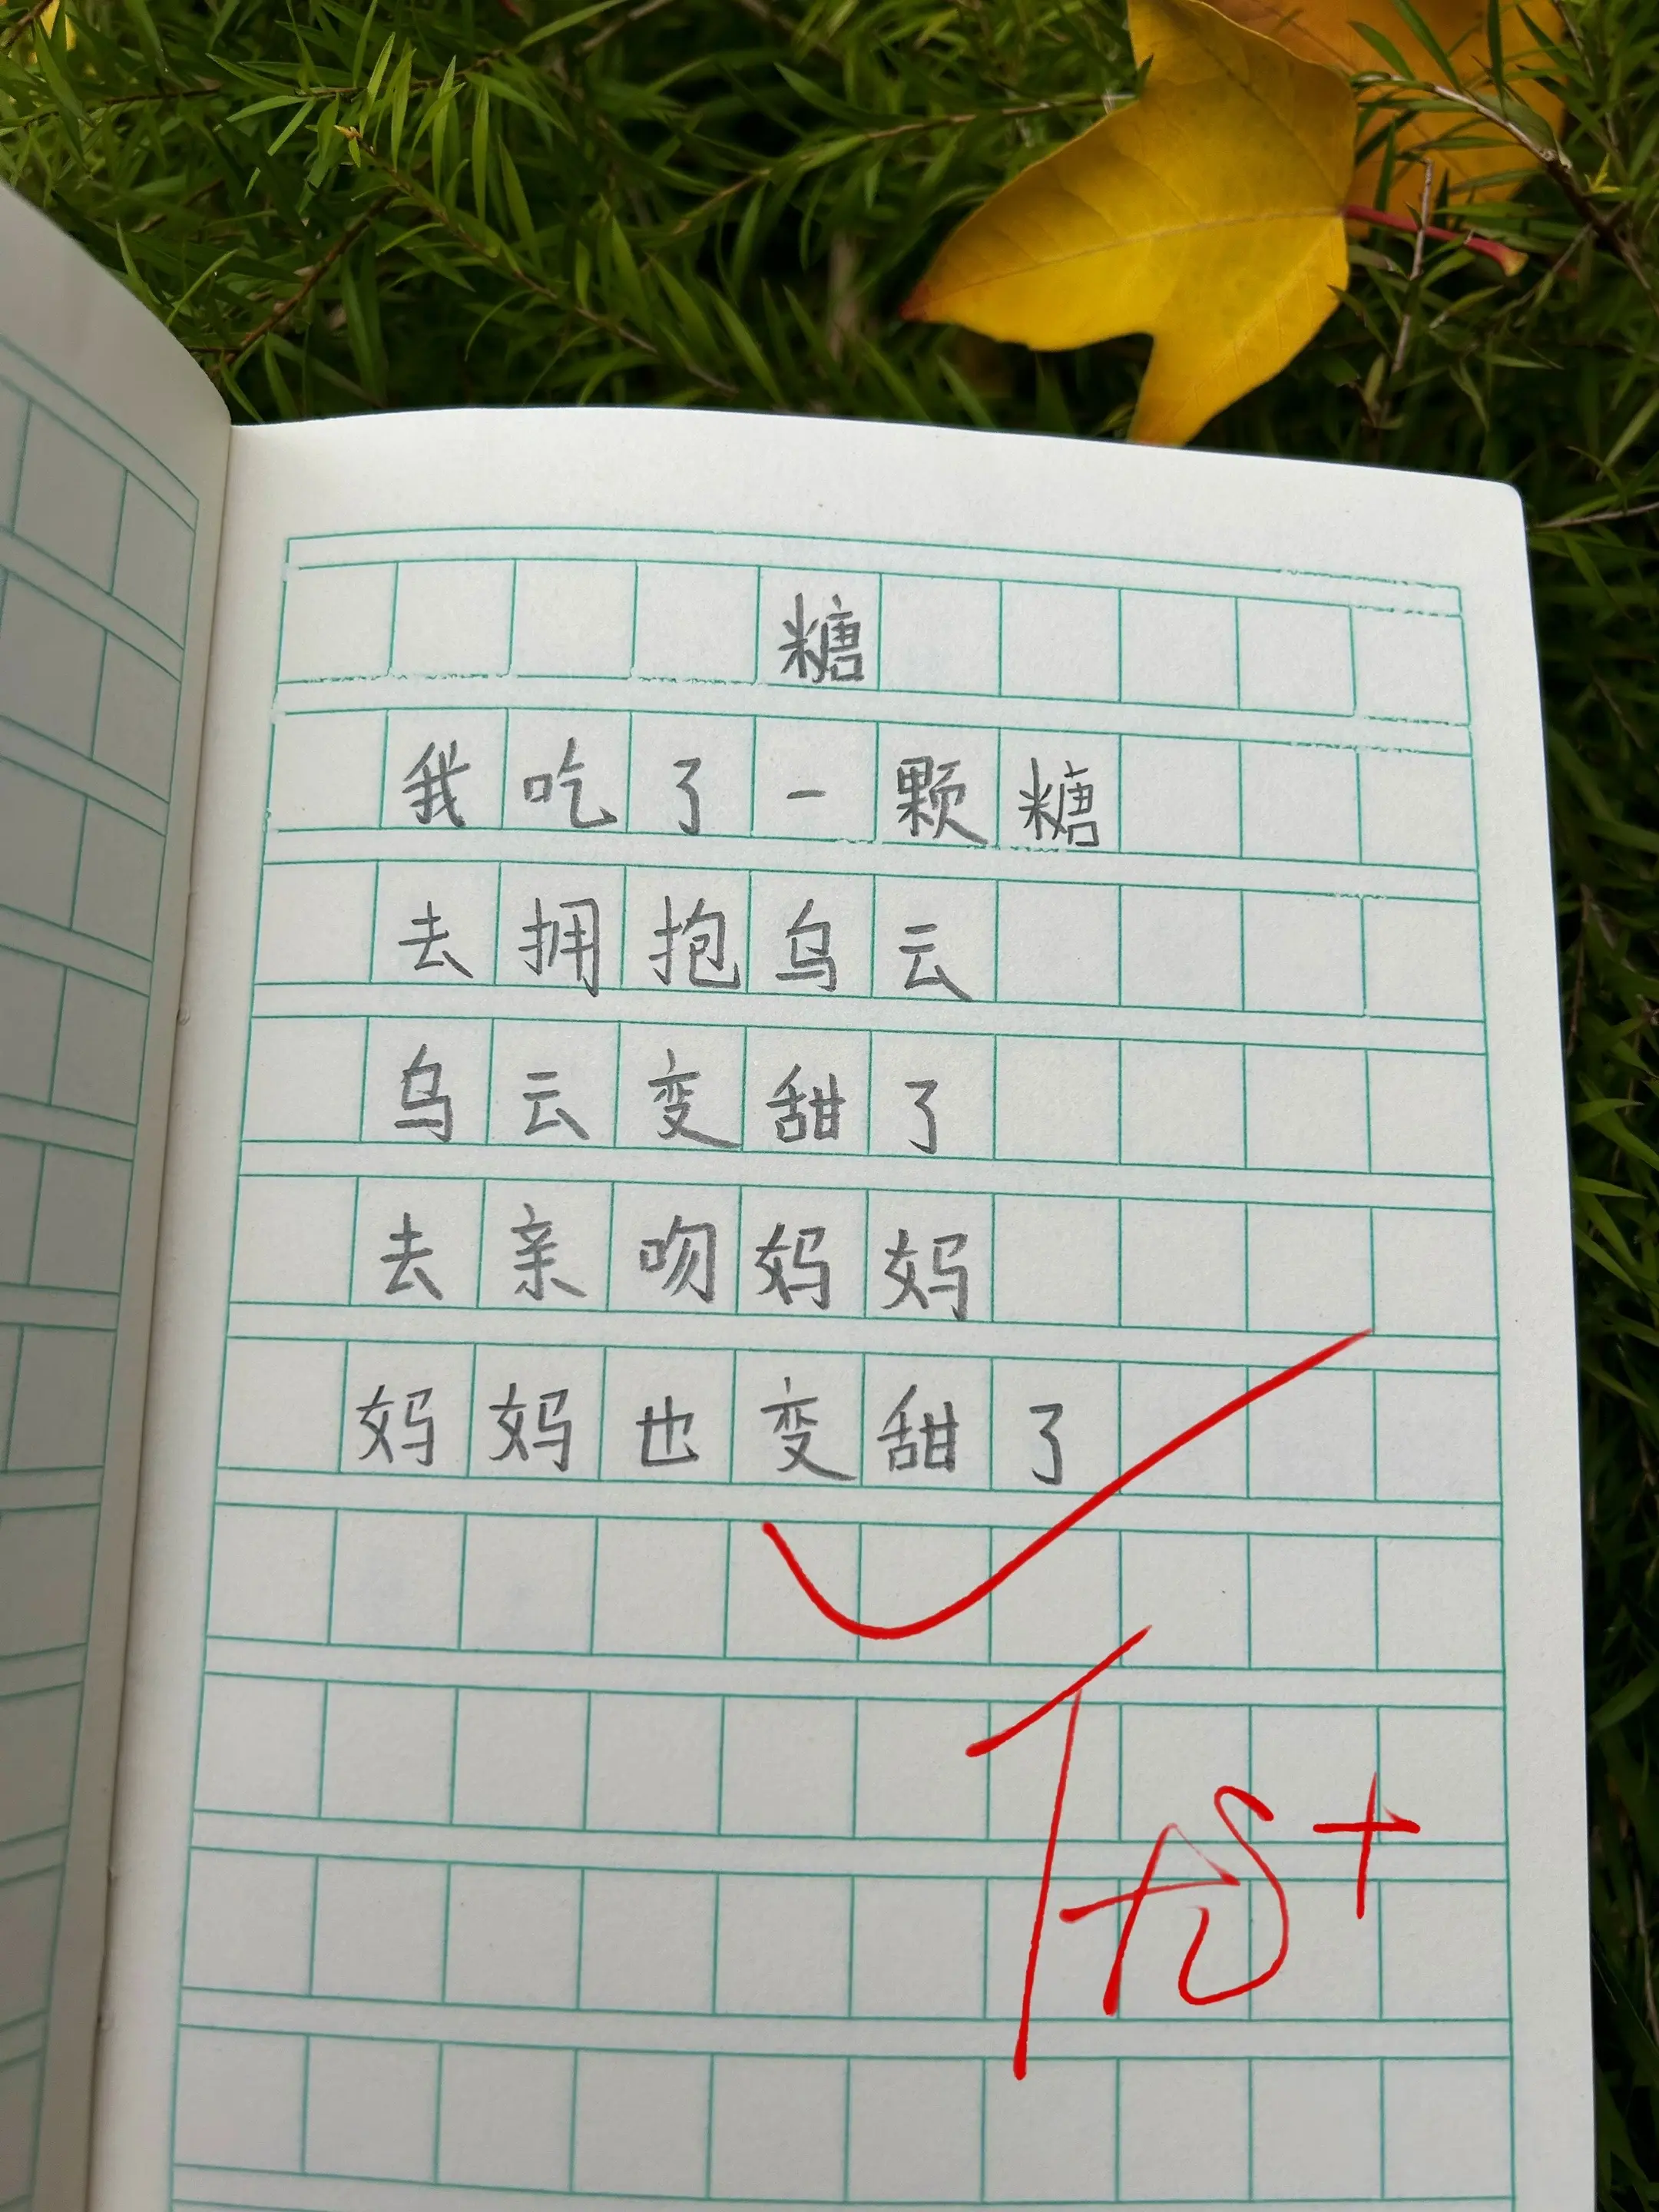 糖
我吃了一颗糖
去拥抱乌云
乌云变甜了
去亲吻妈妈
妈妈也变甜了
优+